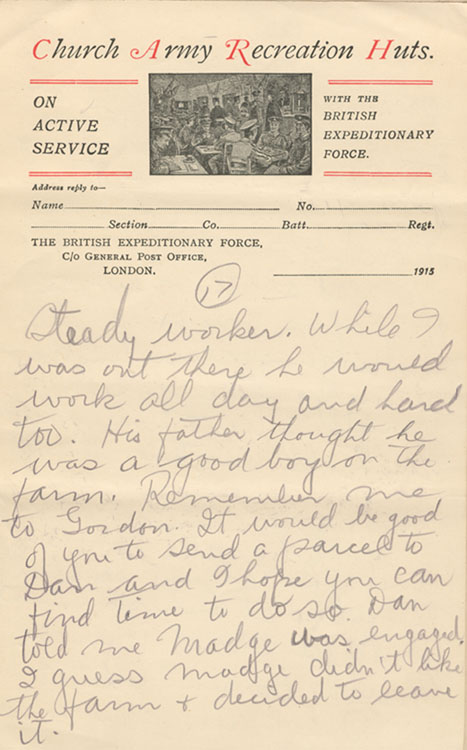 Church Army Recreation Huts.
ON
ACTIVE
SERVICE
WITH THE
BRITISH
EXPEDITIONARY
FORCE.
Address reply to—
Name No.
Section Co. Batt. Regt.
THE BRITISH EXPEDITIONARY FORCE,
C/o GENERAL POST OFFICE,
LONDON.
1915
17
Steady worker. While I
was out there he would
work all day and hard
too. His father thought he
was a good boy on the
farm. Remember me
to Gordon. It would be good
of you to send a parcel to
Dan and I hope you can
find time to do so. Dan
told me Madge was engaged.
I guess Madge didn't like
the farm + decided to leave
it.